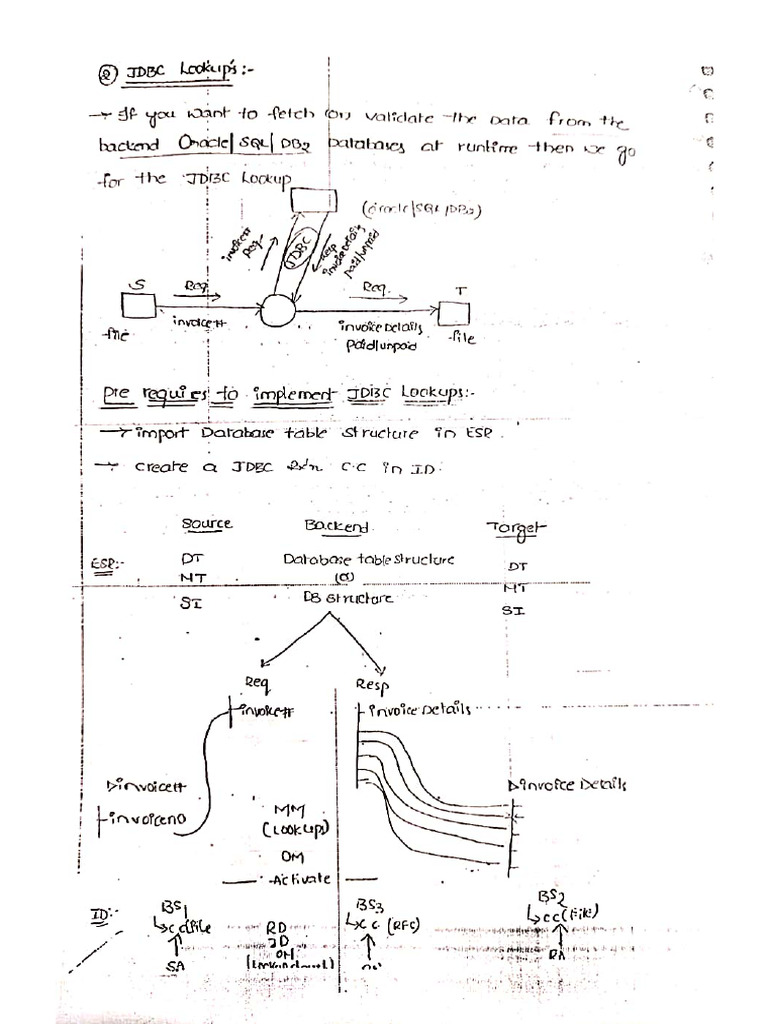 ② JDBC Lookup's:-
→ If you want to fetch (or) validate the Data from the
backend Oracle/SQL/DB2 Databases at runtime then we go
for the JDBC Lookup
(oracle/SQL/DB2)
invoice# Req
JDBC
Resp invoice Details paid/unpaid
S Req Req T
file invoice# invoice Details file
paid/unpaid
Pre requires to implement JDBC Lookups:-
→ import Database table structure in ESR.
→ create a JDBC Rxr C.C in ID.
Source Backend Target
ESR:- DT Database table structure DT
MT (or) MT
SI DB structure SI
Req Resp
invoice# invoice Details
invoice# invoice Details
invoiceno MM
(Lookups)
OM
Activate
ID:- BS1 BS3 BS2
CC(file RD CC (RFC) CC(File)
ID
OM
SA RA